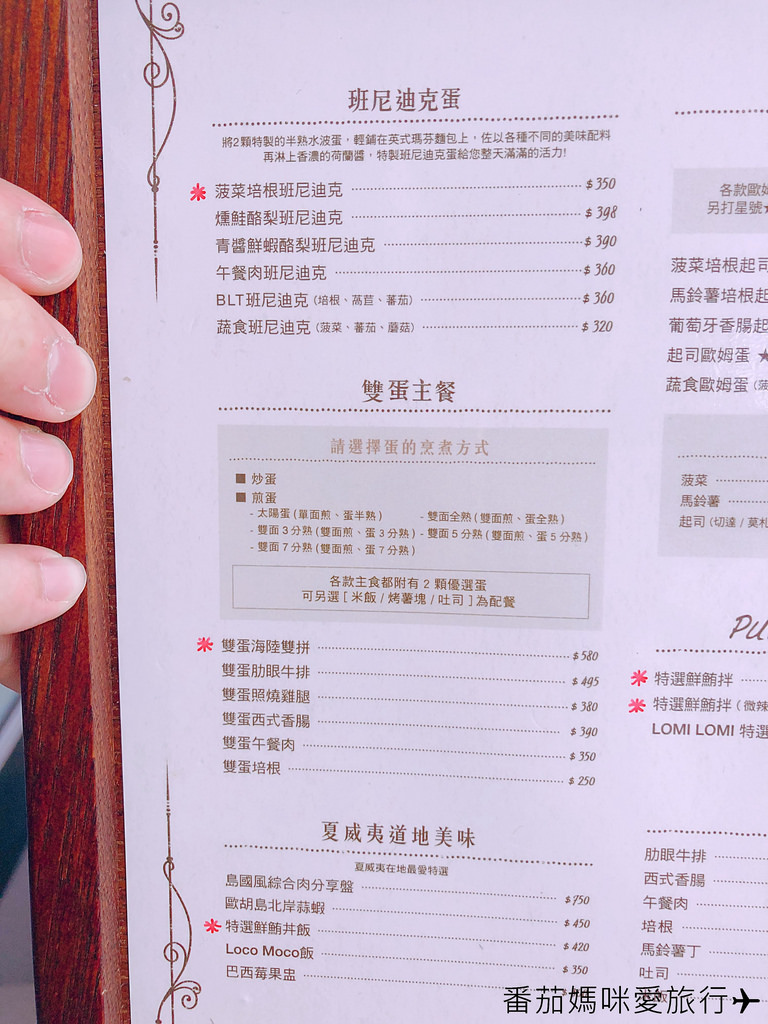 班尼迪克蛋
將2顆特製的半熟水波蛋，輕鋪在英式瑪芬麵包上，佐以各種不同的美味配料
再淋上香濃的荷蘭醬，特製班尼迪克蛋給您整天滿滿的活力!
菠菜培根班尼迪克 $350
燻鮭酪梨班尼迪克 $398
青醬鮮蝦酪梨班尼迪克 $390
午餐肉班尼迪克 $360
BLT班尼迪克 (培根、萵苣、蕃茄) $360
蔬食班尼迪克 (菠菜、蕃茄、蘑菇) $320
雙蛋主餐
請選擇蛋的烹煮方式
■ 炒蛋
■ 煎蛋
- 太陽蛋 (單面煎、蛋半熟) - 雙面全熟 (雙面煎、蛋全熟)
- 雙面3分熟 (雙面煎、蛋3分熟) - 雙面5分熟 (雙面煎、蛋5分熟)
- 雙面7分熟 (雙面煎、蛋7分熟)
各款主食都附有 2 顆優選蛋
可另選 [ 米飯 / 烤薯塊 / 吐司 ] 為配餐
雙蛋海陸雙拼 $580
雙蛋肋眼牛排 $495
雙蛋照燒雞腿 $380
雙蛋西式香腸 $390
雙蛋午餐肉 $350
雙蛋培根 $250
夏威夷道地美味
夏威夷在地最愛特選
島國風綜合肉分享盤 $750
歐胡島北岸蒜蝦 $450
特選鮮鮪丼飯 $420
Loco Moco飯 $350
巴西莓果盅
各款歐姆
另打星號★
菠菜培根起司
馬鈴薯培根起
葡萄牙香腸起
起司歐姆蛋 ★
蔬食歐姆蛋 (菠
菠菜
馬鈴薯
起司 (切達 / 莫札
PU
特選鮮鮪拌
特選鮮鮪拌 (微辣
LOMI LOMI 特選
肋眼牛排
西式香腸
午餐肉
培根
馬鈴薯丁
吐司
番茄媽咪愛旅行✈